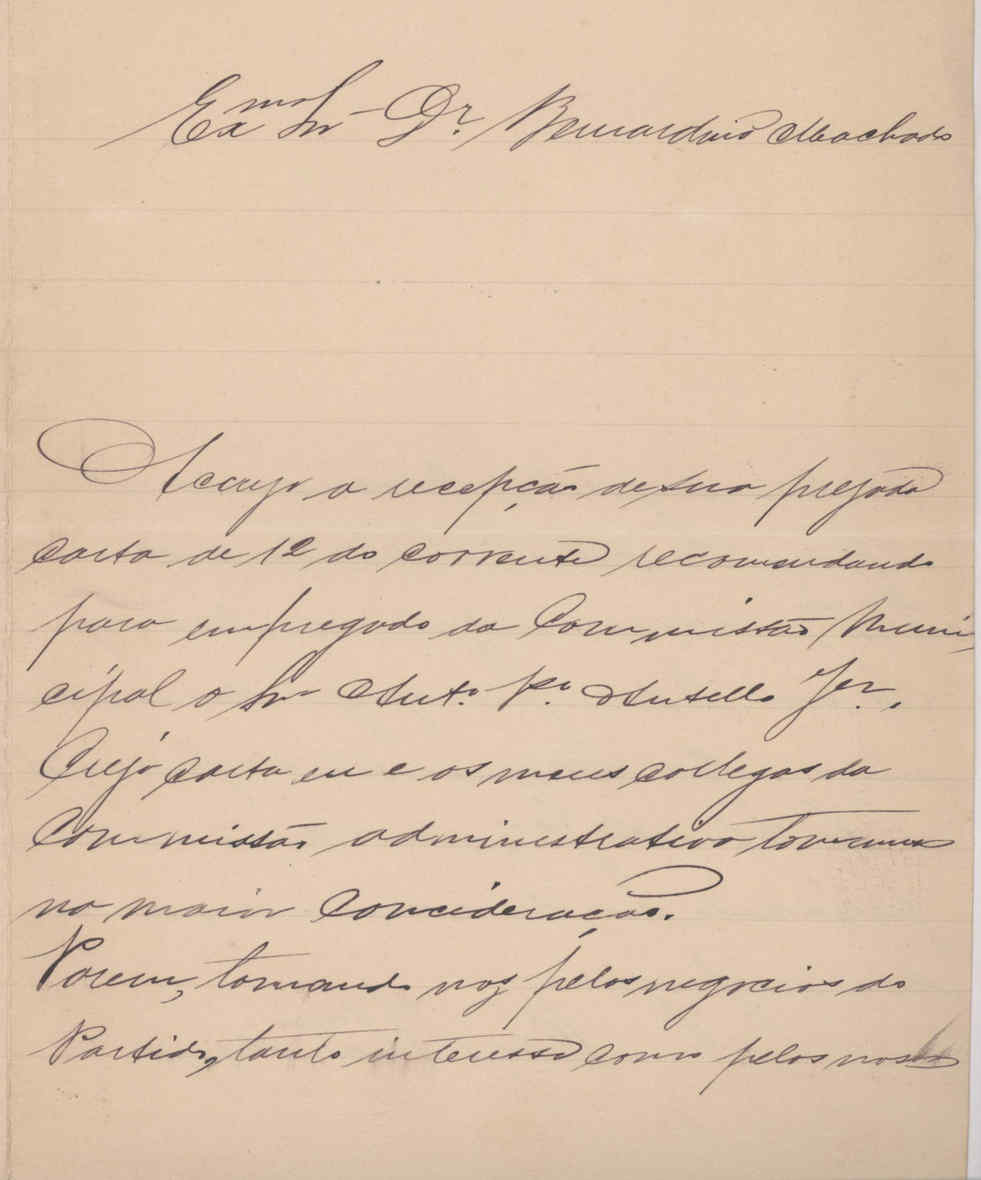 Exmo Sr Dr. Bernardino Machado
Accuso a recepção de sua prezada
carta de 12 do corrente recomendando
para empregado da Commissão Muni
cipal o Sr Anto. Po. Jor.
Cujo carta eu e os meus collegas da
Commissão administrativa tomamos
na maior concideração.
Porem, tomando nos pelos negocios do
Partido, tanto interesse como pelos nossos